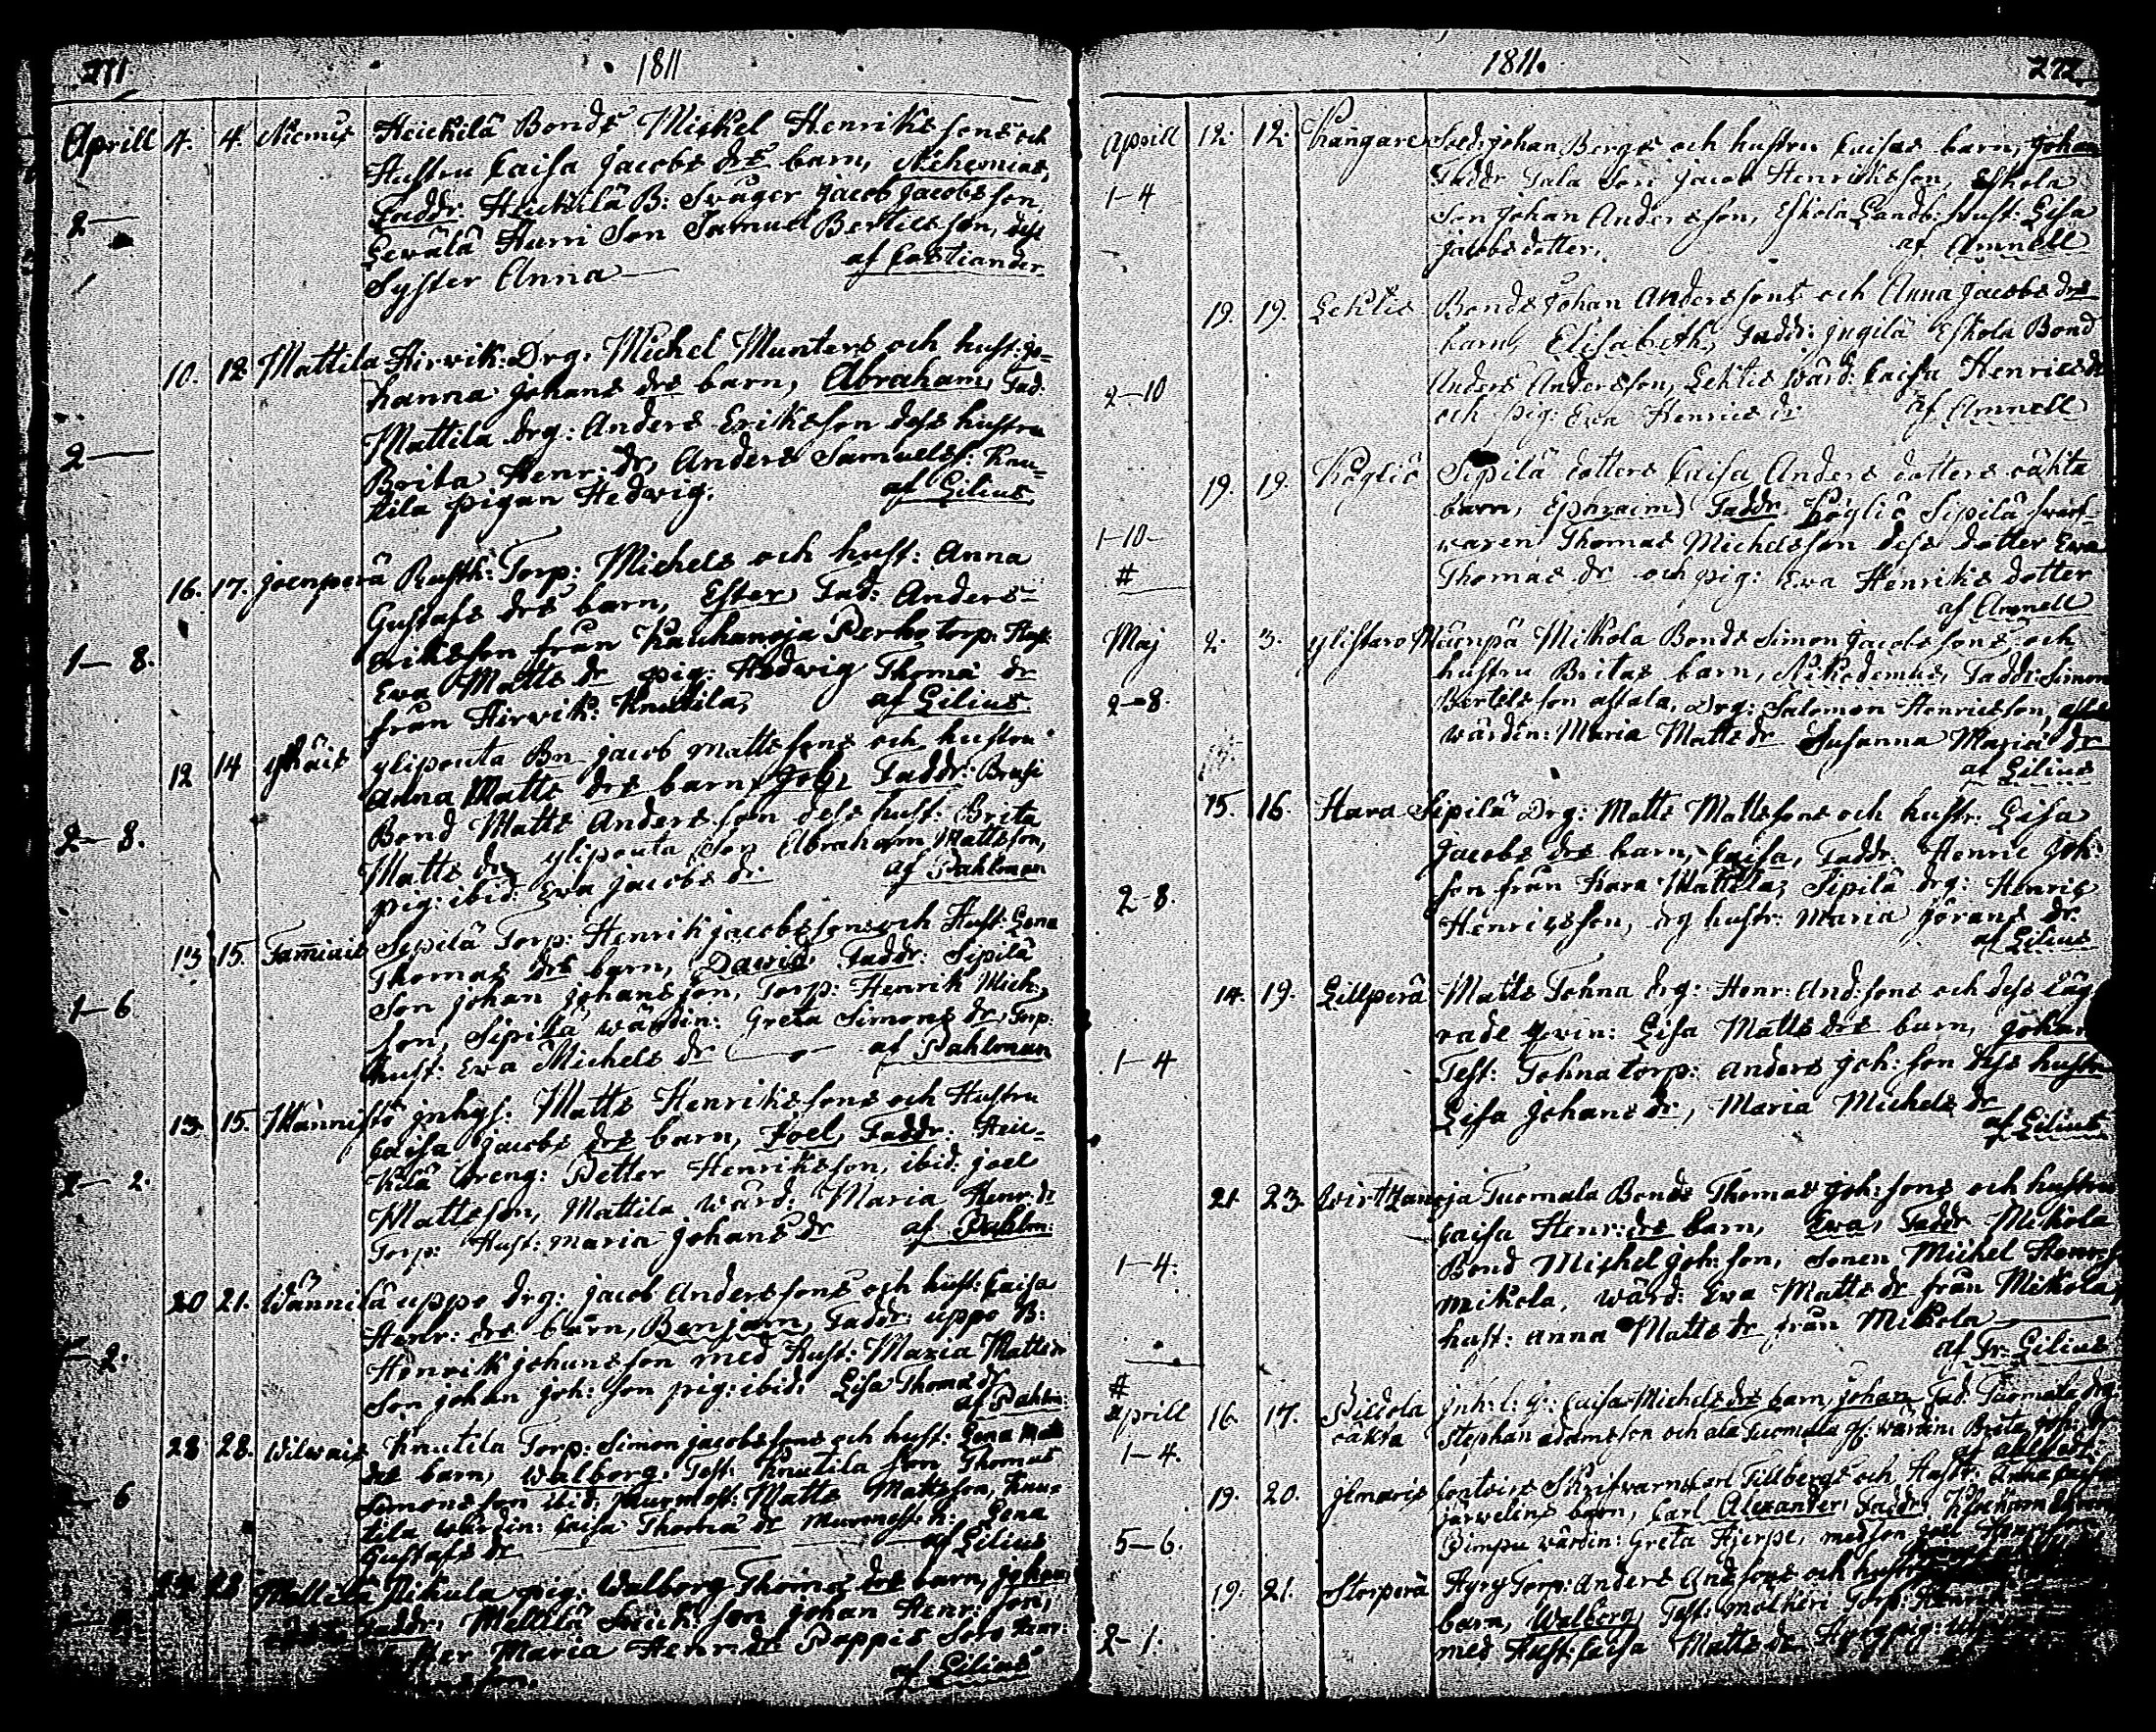 271 1811
Aprill 4. 4. Niemis Heickilä Bonds Mickel Henrikssons och
Hustru Caisa Jacobs drs barn, Nehemias,
2— Faddr: Heickilä B: Svåger Jacob Jacobsson,
Lewälä Hurri Son Samuel Bertilsson, dess
Syster Anna — af Castiander
10. 12 Mattila Hirvik: Drg: Michel Munters och hust: Jo-
hanna Johans drs barn, Abraham, Fad:
Mattila drg: Anders Eriksson dess hustru
2— Brita Henr: dr, Anders Samuelss: Knu-
tila pigan Hedwig. af Lilius
16. 17. Joenperä Rusth: Torp: Michels och hust: Anna
Gustafs drs barn, Ester, Fad: Anders
Eriksson från Kauhanoja Perho torp: Hust
1—8. Ewa Matts dr pig: Hedwig Thoma dr
från Hirvik: Knutila, af Lilius
12 14 Yhäis Ylipouta Bn Jacob Mattssons och hustru
Anna Matts drs barn, Job, Faddr: Brusi
Bond Matts Andersson dess hust: Brita
2—8. Matts dr, Ylipouta Son Abraham Mattsson,
pig: ibid: Ewa Jacobs dr af Pahlman
13 15. Tamiais Sipilä Torp: Henrik Jacobssons och Hust: Lena
Thomas drs barn, David, Faddr: Sipilä
Son Johan Johansson, Torp: Henrik Mich:
1—6 son, Sipilä wärdin: Greta Simons dr, Torp:
hust: Ewa Michels dr — af Pahlman
13. 15. Männistö Inhys: Matts Henrikssons och Hustru
Caisa Jacobs drs barn, Joel, Faddr: Hei-
kilä Dreng: Petter Henriksson, ibid: Joel
2. Mattsson, Mattila wärd: Maria Henr: dr
Torp: Hust: Maria Johans dr af Pahlm:
20 21. Wännilä uppo drg: Jacob Anderssons och hust: Caisa
Henr: drs barn, Benjam, Faddr: uppo B:
2. Henrik Johansson med Hust: Maria Matts dr
Son Johan Joh: son pig: ibid: Lisa Thoma dr
af Pahlm:
28 28. Wilwais Knutila Torp: Simon Jacobssons och hust: Lena Matts
drs barn, Walborg, Test: Knutila Son Thomas
6 Simonsson ibid: Murmest: Matts Mattsson, Knu-
tila wärdin: Caisa Thoma dr Murmest: h: Lena
Gustafs dr — af Lilius
28 Mellilä Nikula pig: Walborg Thoma drs barn, Johan,
Faddr: Mellilä Son Johan Henr: son,
Maria Henr: dr Poppis
af Lilius
1811. 272
Aprill 12. 12. Kangare Sold: Johan Bergs och hustru Caisas barn, Johan
1—4 Faddr Tala Son Jacob Henriksson, Eskola
Son Johan Andersson, Eskola Landb: hust: Lisa
Jacobsdotter. af Amnell
19. 19. Lehtis Bonds Johan Anderssons och Anna Jacobs drs
barn, Elisabeth, Faddr: Jugilä Eskola Bond
2—10 Anders Andersson, Lehtis wärd: Caisa Henrics dr
och pig: Ewa Henrics dr af Amnell
19. 19. Köyliö Sipilä dotters Caisa Anders dotters oäkta
barn, Ephraim, Faddr: Köyliö Sipilä
1—10 Thomas Michelsson dess dotter Ewa
# Thomas dr och pig: Ewa Henriks dotter
af Amnell
Maj 2. 3. Ylistaro Mikola Bonds Simon Jacobssons och
hustru Britas barn, Nikodemus, Faddr: Simon
2—8. Bertelsson Assala, Drg: Salomon Henricsson,
wärdin: Maria Matts dr Susanna Maria dr
af Lilius
15. 16. Hara Sipilä Drg: Matts Mattssons och hustr: Lisa
Jacobs drs barn, Caisa, Faddr: Henric Joh:
son från Hara Mattila, Sipilä drg: Henric
2—8. Henricsson, drg hustr: Maria Jörans dr.
af Lilius
14. 19. Lillperä Matts Tohna drg: Henr: And: sons och dess läg-
rade qvin: Lisa Matts drs barn, Johan
1—4 Test: Tohna torp: Anders Joh: son dess hustru
Lisa Johans dr, Maria Michels dr
af Lilius
21. 23. Wirtzanoja Tuomala Bonds Thomas Joh: sons och hustru
Caisa Henr: drs barn, Ewa, Faddr Mikola
1—4. Bond Mickel Joh: son, Sonen Mickel Henr: s
Mikola, wärd: Ewa Matts dr från Mikola,
hust: Anna Matts dr från Mikola —
af Fr: Lilius
#
Aprill 16. 17. Piilola Inh: l: g: Caisa Michels drs barn, Johan, Fad: Tuomala drg:
oäkta Stephan Adamsson och ala Tuomala gl: wärdin: Brita Joh: dr
1—4. af Ahlstedt
19. 20. Ilmaris Contoirs Skrifvaren Carl Tillbergs och Hustr: Anna Caisa
Järvelins barn, Carl Alexander, Faddr:
5—6. Pimpu wärdin: Greta Hjerpe, med son Joel Henricsson
19. 21. Storperä Hyry Torp: Anders And: sons och hustr
barn, Walborg, Test: Molkeri Torp: Henrik
2—1. med Hust: Caisa Matts dr, Hyry pig: